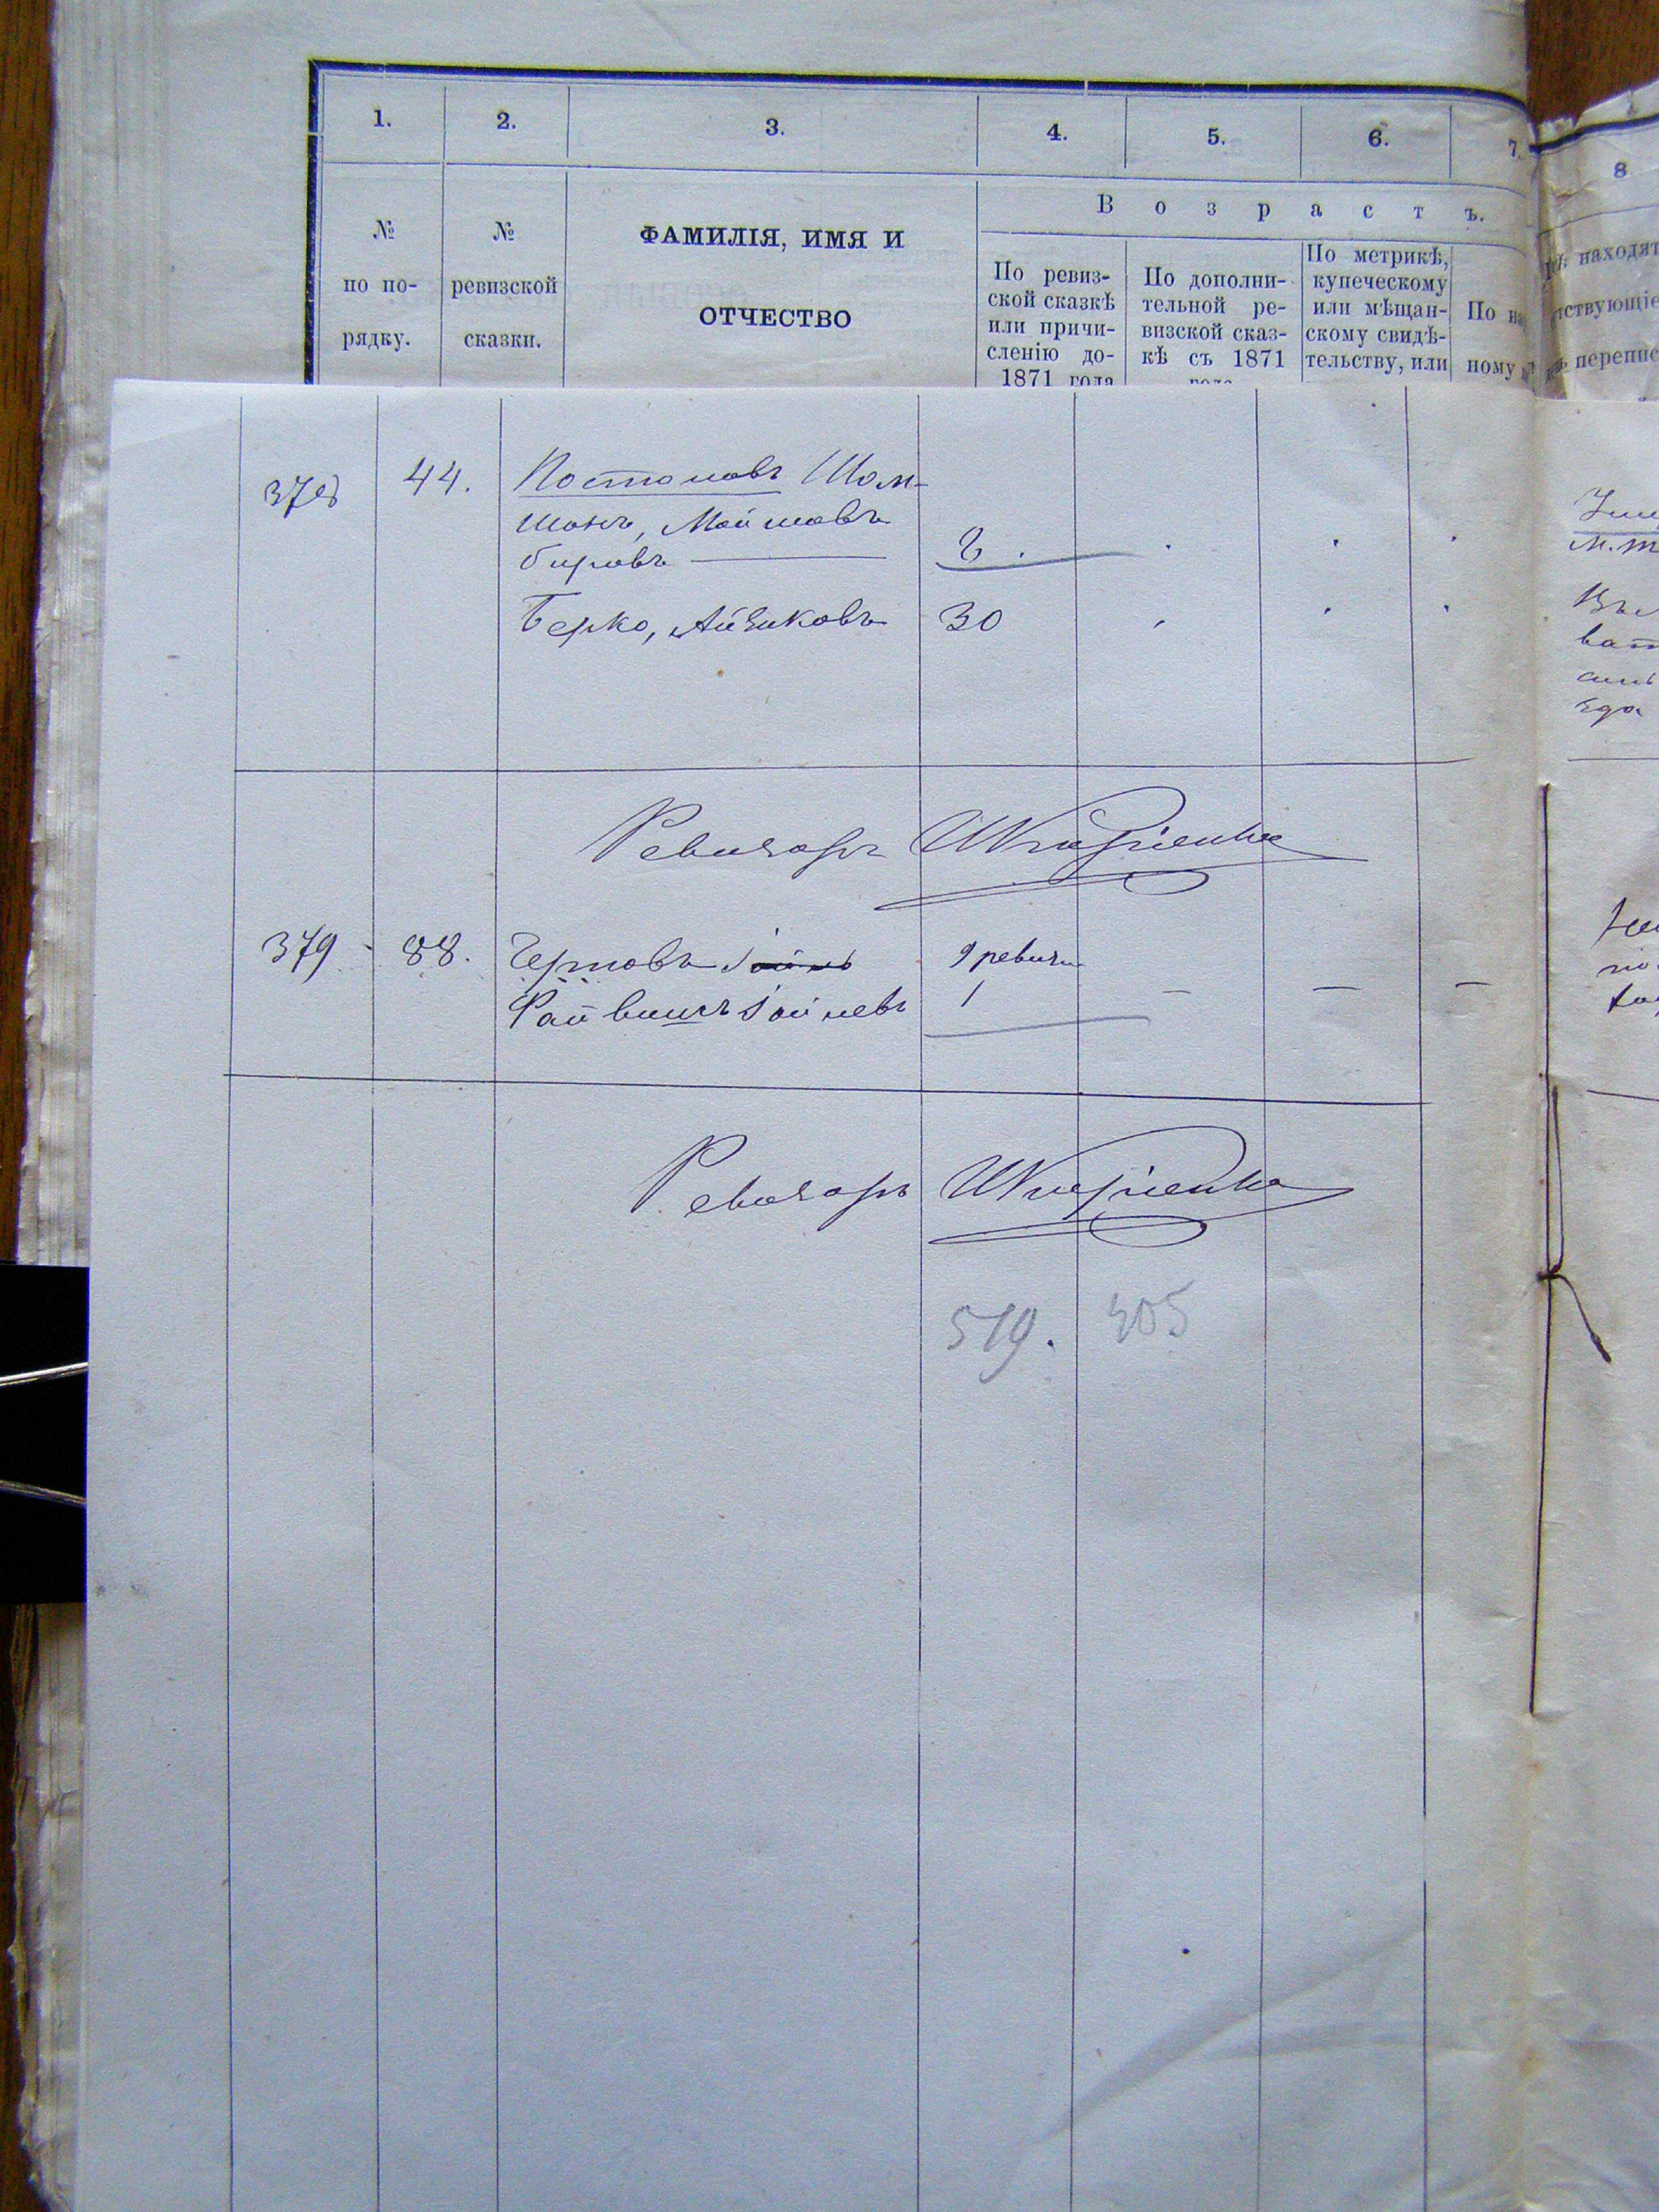 1. 2. 3. 4. 5. 6. 7. 8
№ по порядку.
№ ревизской сказки.
ФАМИЛІЯ, ИМЯ И
ОТЧЕСТВО
Возрастъ.
По ревиз-
ской сказкѣ
или причи-
сленію до-
1871 года
По дополни-
тельной ре-
визской сказ-
кѣ съ 1871
года
По метрикѣ,
купеческому
или мѣщан-
скому свидѣ-
тельству, или
По
ному
находят
тствующіе
перепис
378 44. Постоловъ Шом-
шонъ, Мойшовъ
бировъ
Берко, Айзиковъ 30
Ревизоръ
379 - 88. Черновъ Іойнь 9 ревизи
Файвишъ Іойневъ 1 — — —
Ревизоръ
519. 305